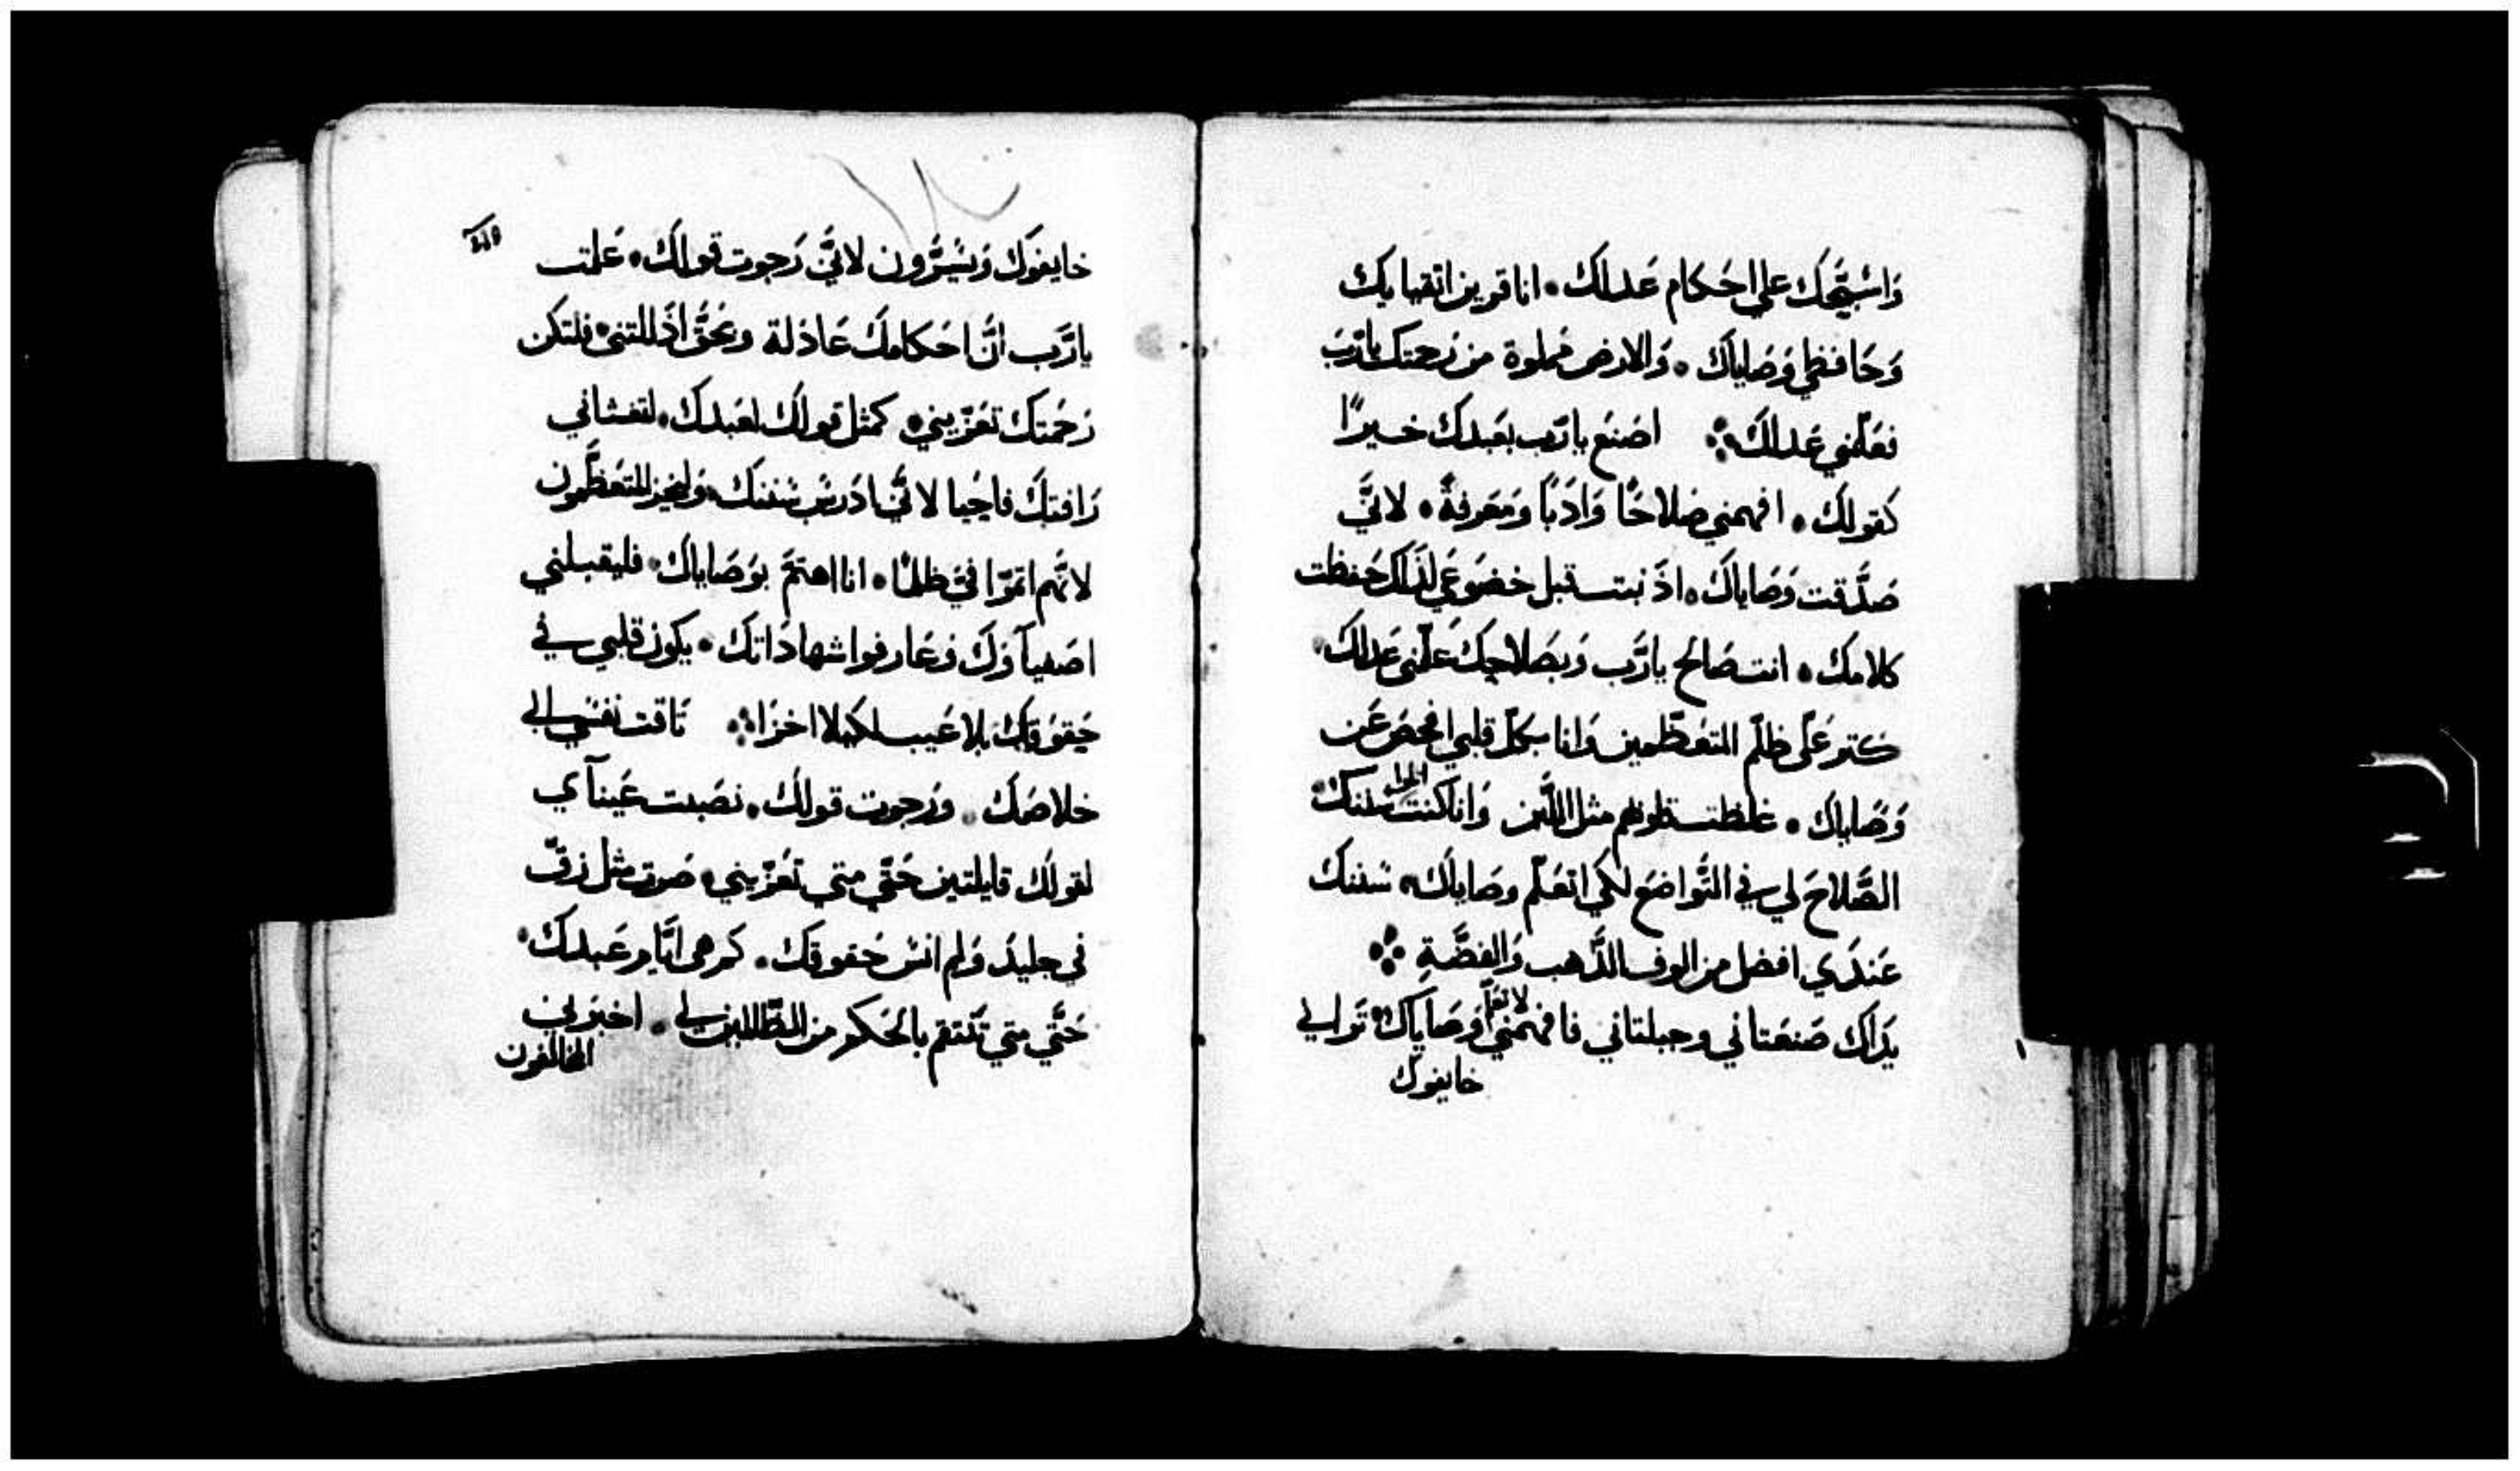 وَاسَبّحَك علي احَكام عَدلك. انا قرين اتقيايك
وَحَافظي وَصَاياك. وَالارض مملوة من رَحمتك يارّبَ
فعَلّمني عَدلك ܀ اصَنع يارّب بعَبدك خيرًا
كقولك. افهمني صَلاحًا وَادَبًا وَمَعَرفةً. لانيَّ
صَدَّقت وَصَاياك. اذَنبت قبل خضوَعي لذَلك حَفظت
كلامك. انت صَالح يارَّب وَبصَلاحِك عَلّمني عَدلك.
كتر عَلَى ظلّم المتعَظّمين وَانا بكلّ قلبي افحصَ عَن
وَصَاياك. غلظت قلوبهم مثل اللَّبن وَانا كنت سُننك
الصَّلاحَ لي في التَّواضعَ لكي اتعَلّم وصَاياك. سُننك
عَندَي افضل من الوف الذَّهب وَالفضَّةِ ܀
يدَاك صَنعَتاني وجبلتاني فافهمّني لاتعَلّم وَصَاياك. تَراني
خايفوَك
خايفوَك وَيسُرُّون لانيَّ رَجوت قولكَ. عَلمت
يارَّب انَّ احَكامك عَادَلة وبحَقَّ اذَللتني. فلتكن
رَحمَتك تعَزّيني. كمثل قولك لعَبدك. لتغشاني
رَافتك فاحَيا لانيَّ ادَرسُ سُننك. وَليخز المتعَظّمون
لانَّهم اتموّا فيَّ ظلمًا. انا اهتمَ بوَصَاياك. فليقبلني
اصَفيآوَك وَعَارفوا شهادَاتك. يكون قلبي في
حَقوَقك بلا عَيب لكيلا اخزَا ܀ تَاقت نفسي الي
خلاصَك. ورَجوت قولك. نصَبت عَينآي
لقولك قايلتين حَتّي متي تعَزّيني. صَرت مثل زقّ
في جليدَ وَلم انسَ حَقوقك. كم هي ايَّام عَبدك.
حَتَّي متي تَنتقم بالحَكم من الظَّالمين لي. اخبَرني
المخالفون